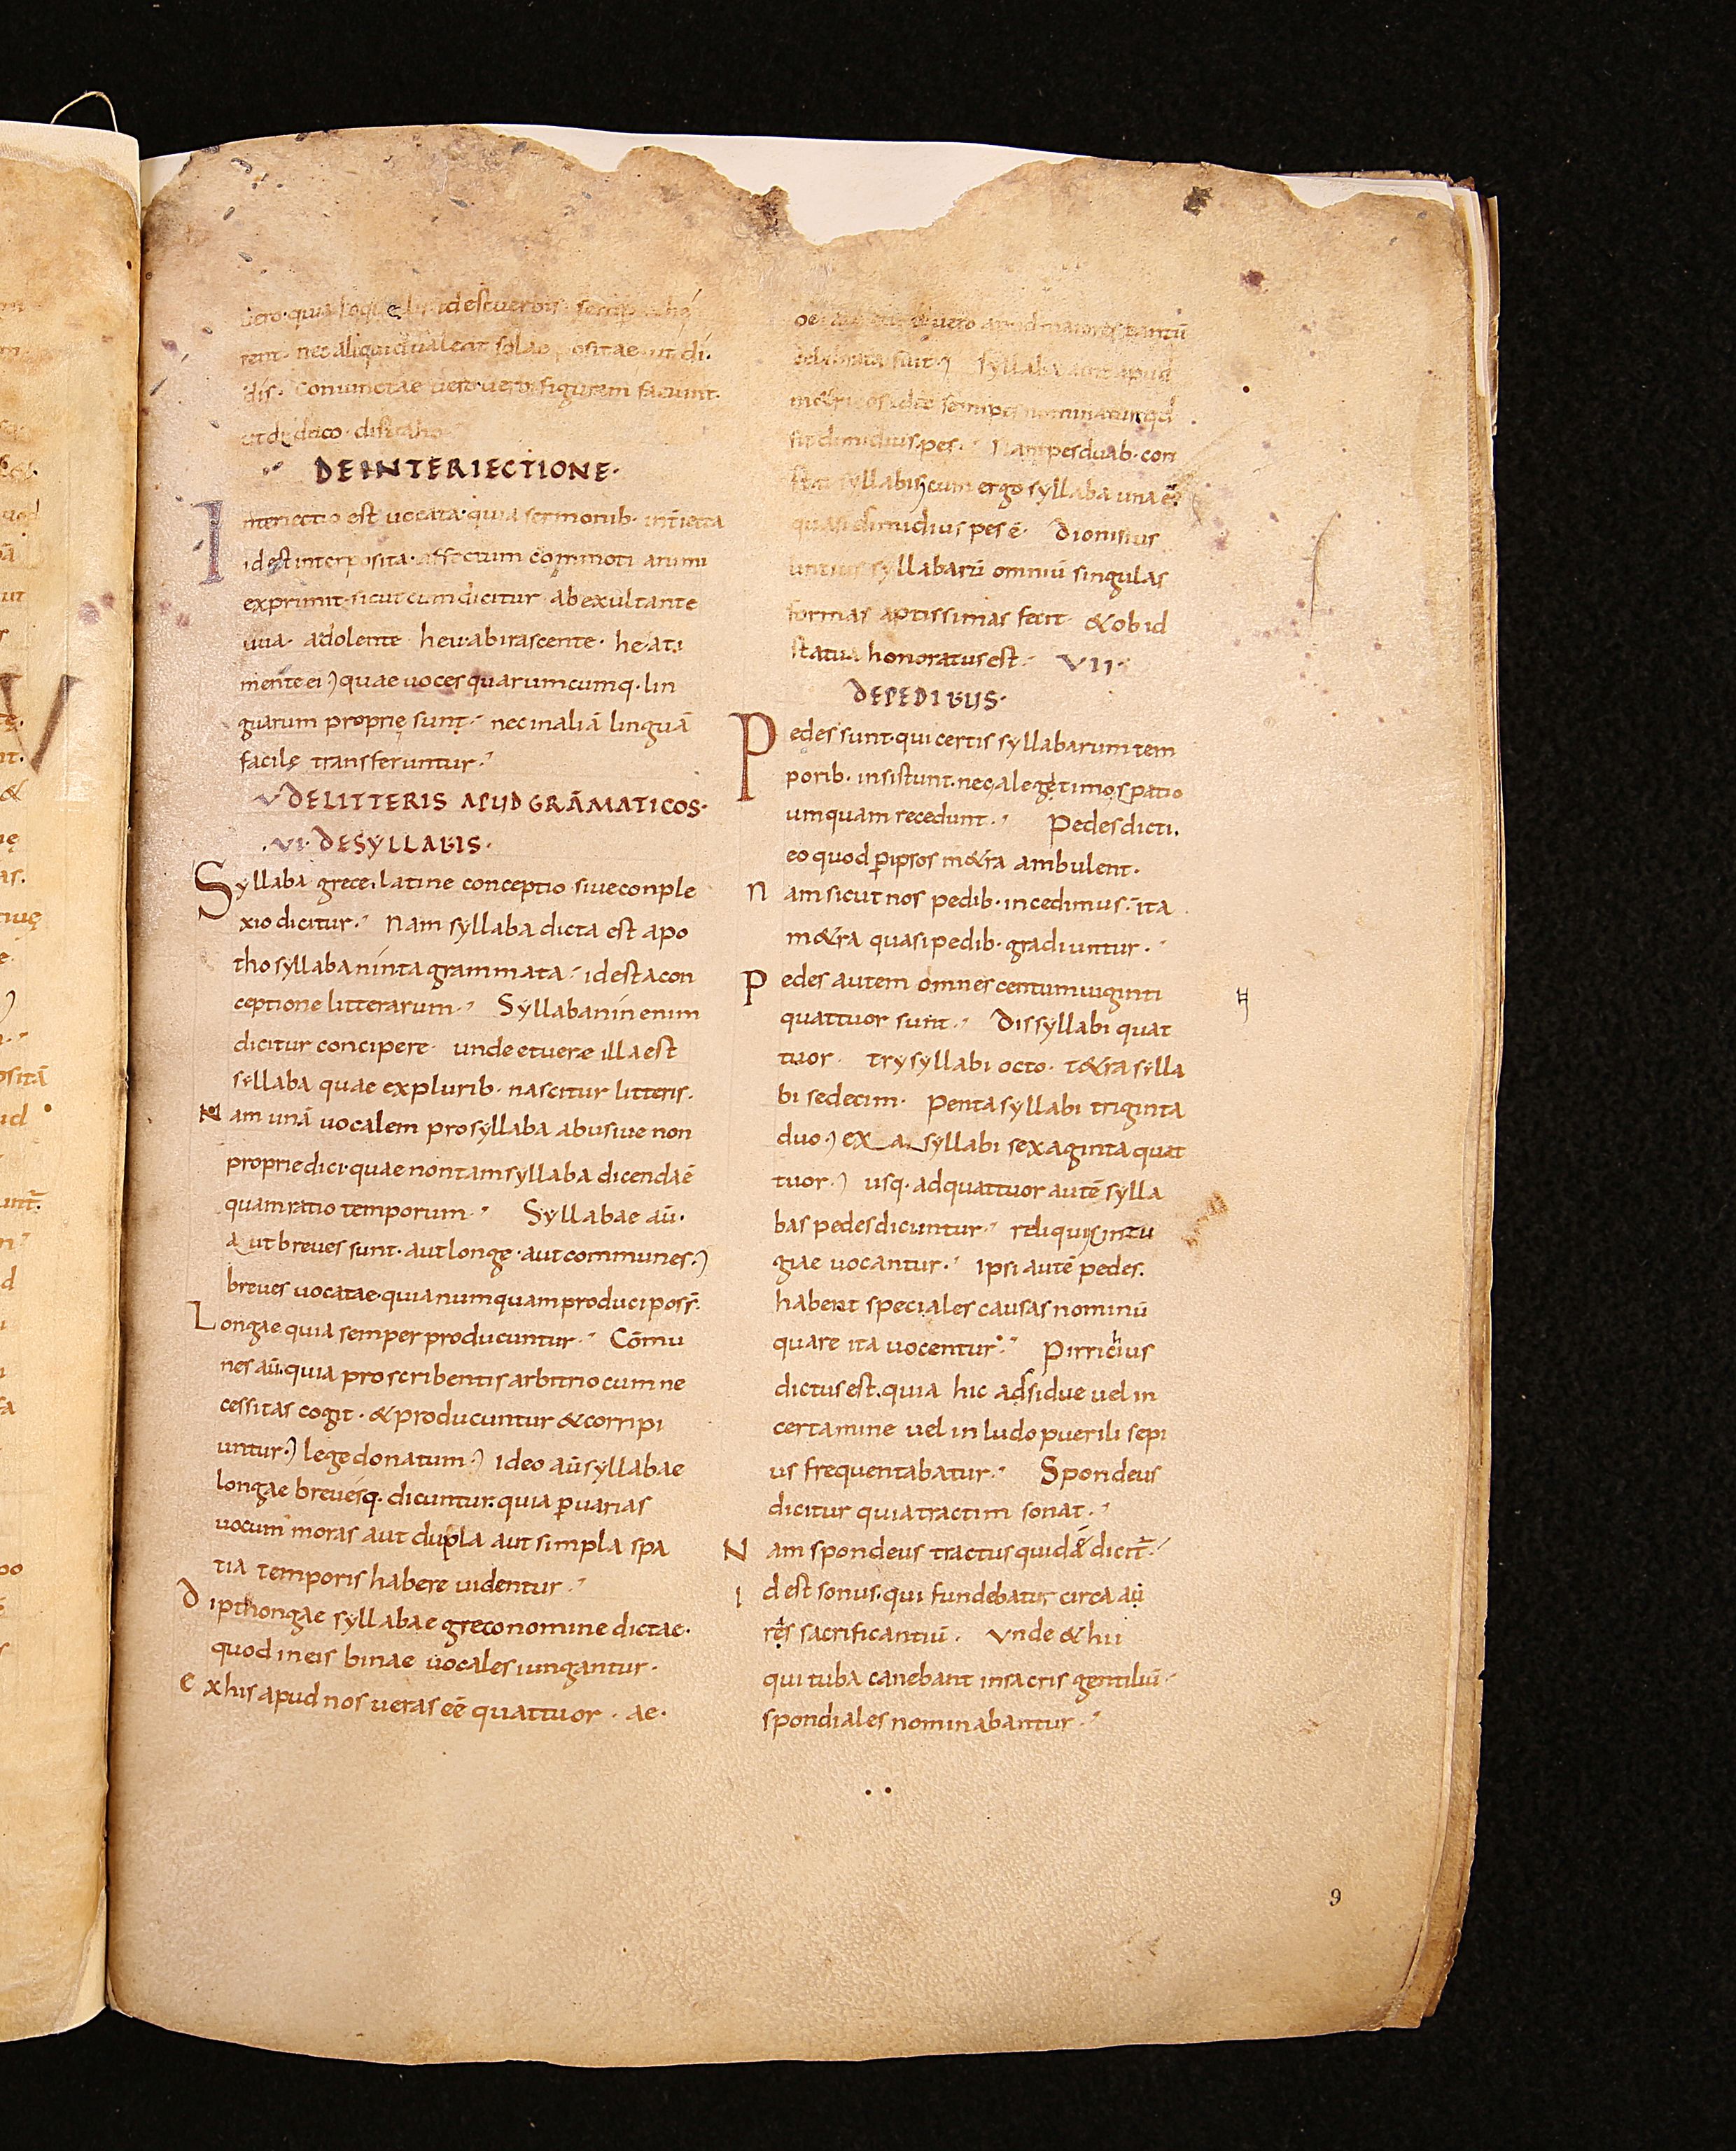 rent. nec aliquid ualeat solae positae. ut di.
dis. Coniunctae uero uerbi figuram faciunt.
ut diduco. distraho.
DE INTERIECTIONE.
Interiectio est uocata quia sermonib. intiecta
id est interposita. affectum commoti animi
exprimit. sicut cum dicitur ab exultante
uua. adolente heu. ab irascente. he. a ti
mente ei quae uoces quarumcumq. lin
guarum proprię sunt. nec in aliā linguā
facilę transferuntur.
V DE LITTERIS APUD GRĀMATICOS.
.VI. DE SYLLABIS.
Syllaba grece. latine conceptio siue conple
xio dicitur. Nam syllaba dicta est apo
tho syllabanin ta grammata. id est a con
ceptione litterarum. Syllabanin enim
dicitur concipere. unde et uere illa est
syllaba quae ex plurib. nascitur litteris.
Nam unā uocalem pro syllaba abusiue non
proprie dici. quae non tam syllaba dicenda ē
quam ratio temporum. Syllabae aū.
aut breues sunt. aut longę. aut communes.
breues uocatae. quia numquam produci poss̄.
Longae quia semper producuntur. Cōmu
nes aū. quia pro scribentis arbitrio cum ne
cessitas cogit. & producuntur & corripi
untur. lege donatum. Ideo aū syllabae
longae breuesq. dicuntur. quia p̄ uarias
uocum moras aut dupla aut simpla spa
tia temporis habere uidentur.
Dipthongae syllabae greco nomine dictae.
quod in eis binae uocales iungantur.
Ex his apud nos ueras eē quattuor. ae.
sit dimidius pes. Nam pes duab. con
stat syllabis cum ergo syllaba una ē.
quasi dimidius pes ē. Dionisius
untius syllabarū omniū singulas
formas aptissimas fecit. & ob id
statua honoratus est. VII.
DE PEDIBUS.
Pedes sunt. qui certis syllabarum tem
porib. insistunt. nec a legętimo spatio
umquam recedunt. Pedes dicti.
eo quod p̄ ipsos m&ra ambulent.
Nam sicut nos pedib. incedimus. ita
m&ra quasi pedib. gradiuntur.
Pedes autem omnes centum uiginti
quattuor sunt. Dissyllabi quat
tuor. trysyllabi octo. t&rasylla
bi sedecim. Pentasyllabi triginta
duo. ex a syllabi sexaginta quat
tuor. usq. ad quattuor autē sylla
bas pedes dicuntur. reliqui sintu
giae uocantur. Ipsi autē pedes.
habent speciales causas nominū
quare ita uocentur. Pirrichius
dictus est. quia hic adsidue uel in
certamine uel in ludo puerili sepi
us frequentabatur. Spondeus
dicitur quia tractim sonat.
Nam spondeus tractus quidā dicit̄.
Id est sonus. qui fundebatur circa au
res sacrificantiū. Vnde & hii
qui tuba canebant in sacris gentiliū
spondiales nominabantur.
9